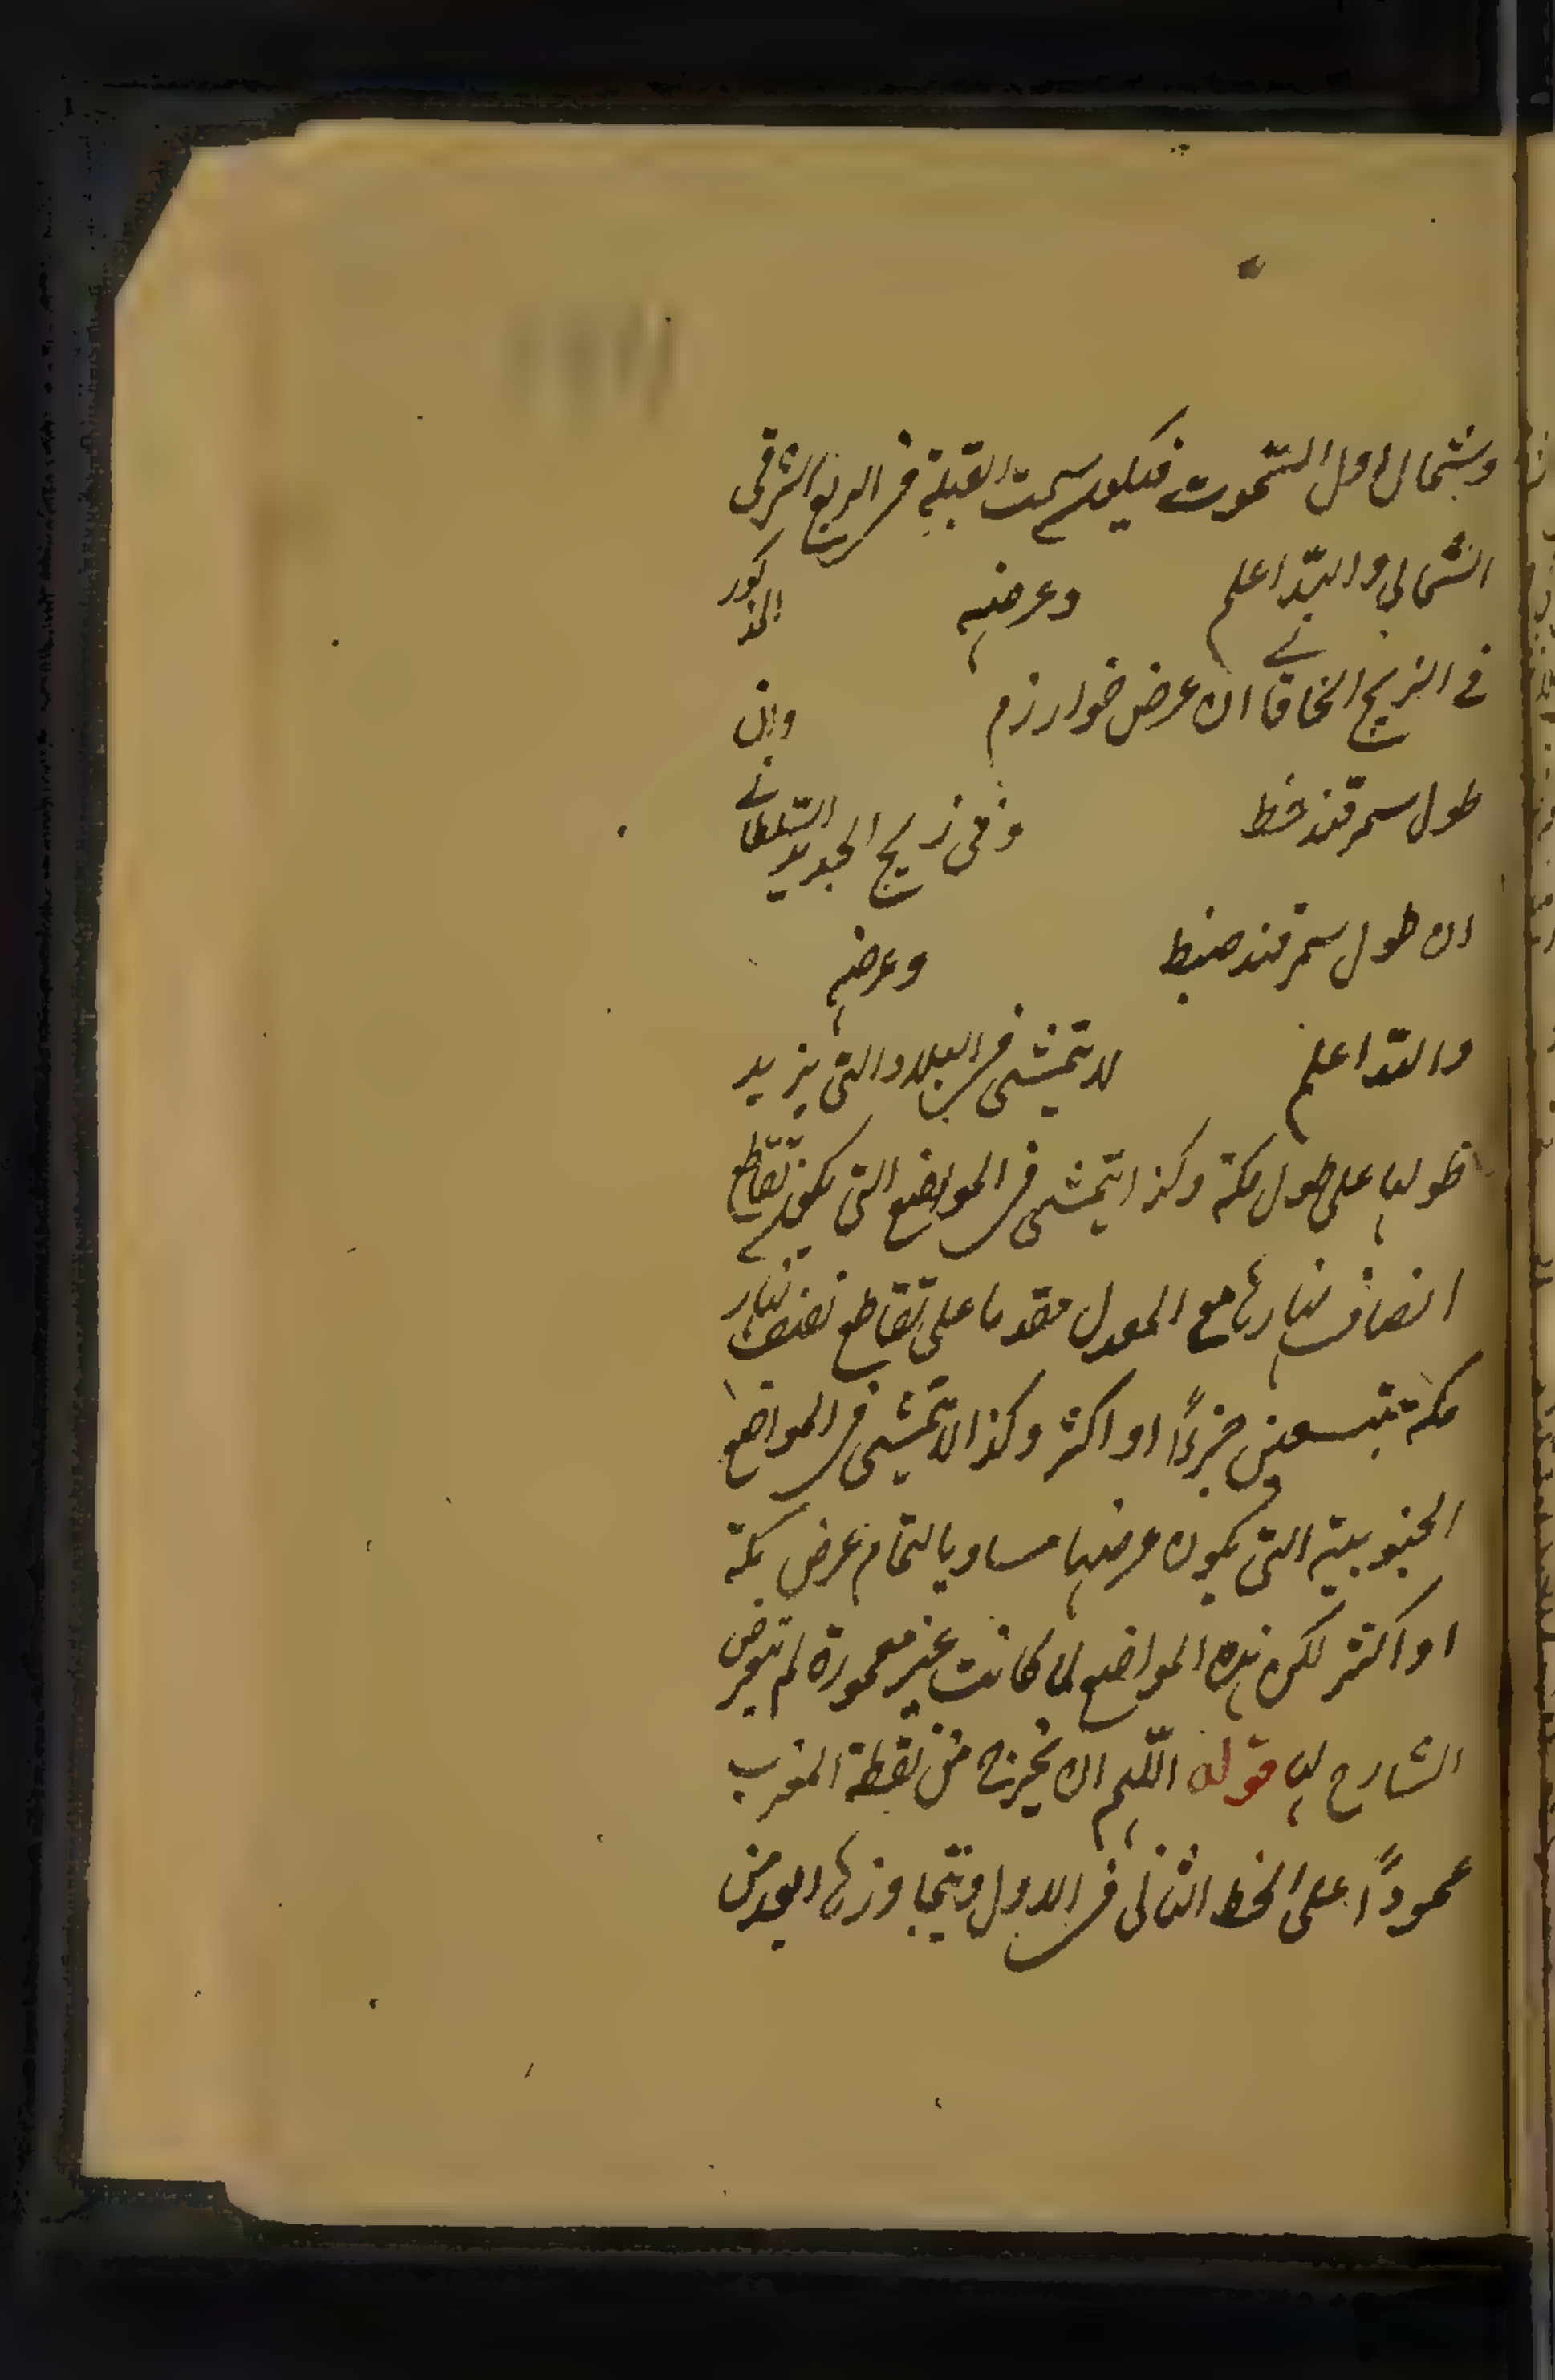 وبشمال اول السموت فيكون سمت القبلة فى الربع الشرقى
الشمالى والله اعلم وعرضه المذكور
فى الزيج الخاقانى ان عرض خوارزم وان
طول سمرقند خط وفى زيج الجديد السلطانى
ان طول سمرقند صنط وعرضه
والله اعلم لا يتمشى فى البلاد التى يزيد
طولها على طول مكة وكذا يتمشى فى المواضع التى يكون تقاطع
انصاف نهارها مع المعدل مقدما على تقاطع نصف نهار
مكة بتسعين جزءًا او اكثر وكذا لا يتمشى فى المواضع
الجنوبية التى يكون عرضها مساويا لتمام عرض مكة
او اكثر لكن هذه المواضع لما كانت غير معمورة لم يتعرض
الشارح لها قوله اللهم ان يخرج من نقطة المغرب
عمودًا على الخط الثانى فى الاول ويتجاوزها العود من